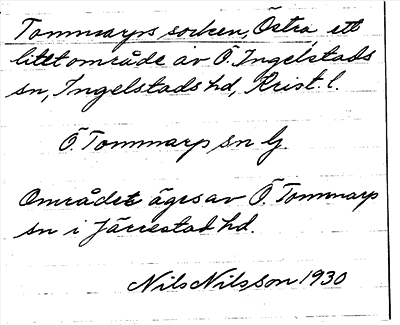 Tommarps socken, Östra, ett
litet område av Ö. Ingelstads
sn, Ingelstads hd, Krist. l.
Ö. Tommarp sn G.
Området äges av Ö. Tommarp
sn i Järrestad hd.
Nils Nilsson 1930